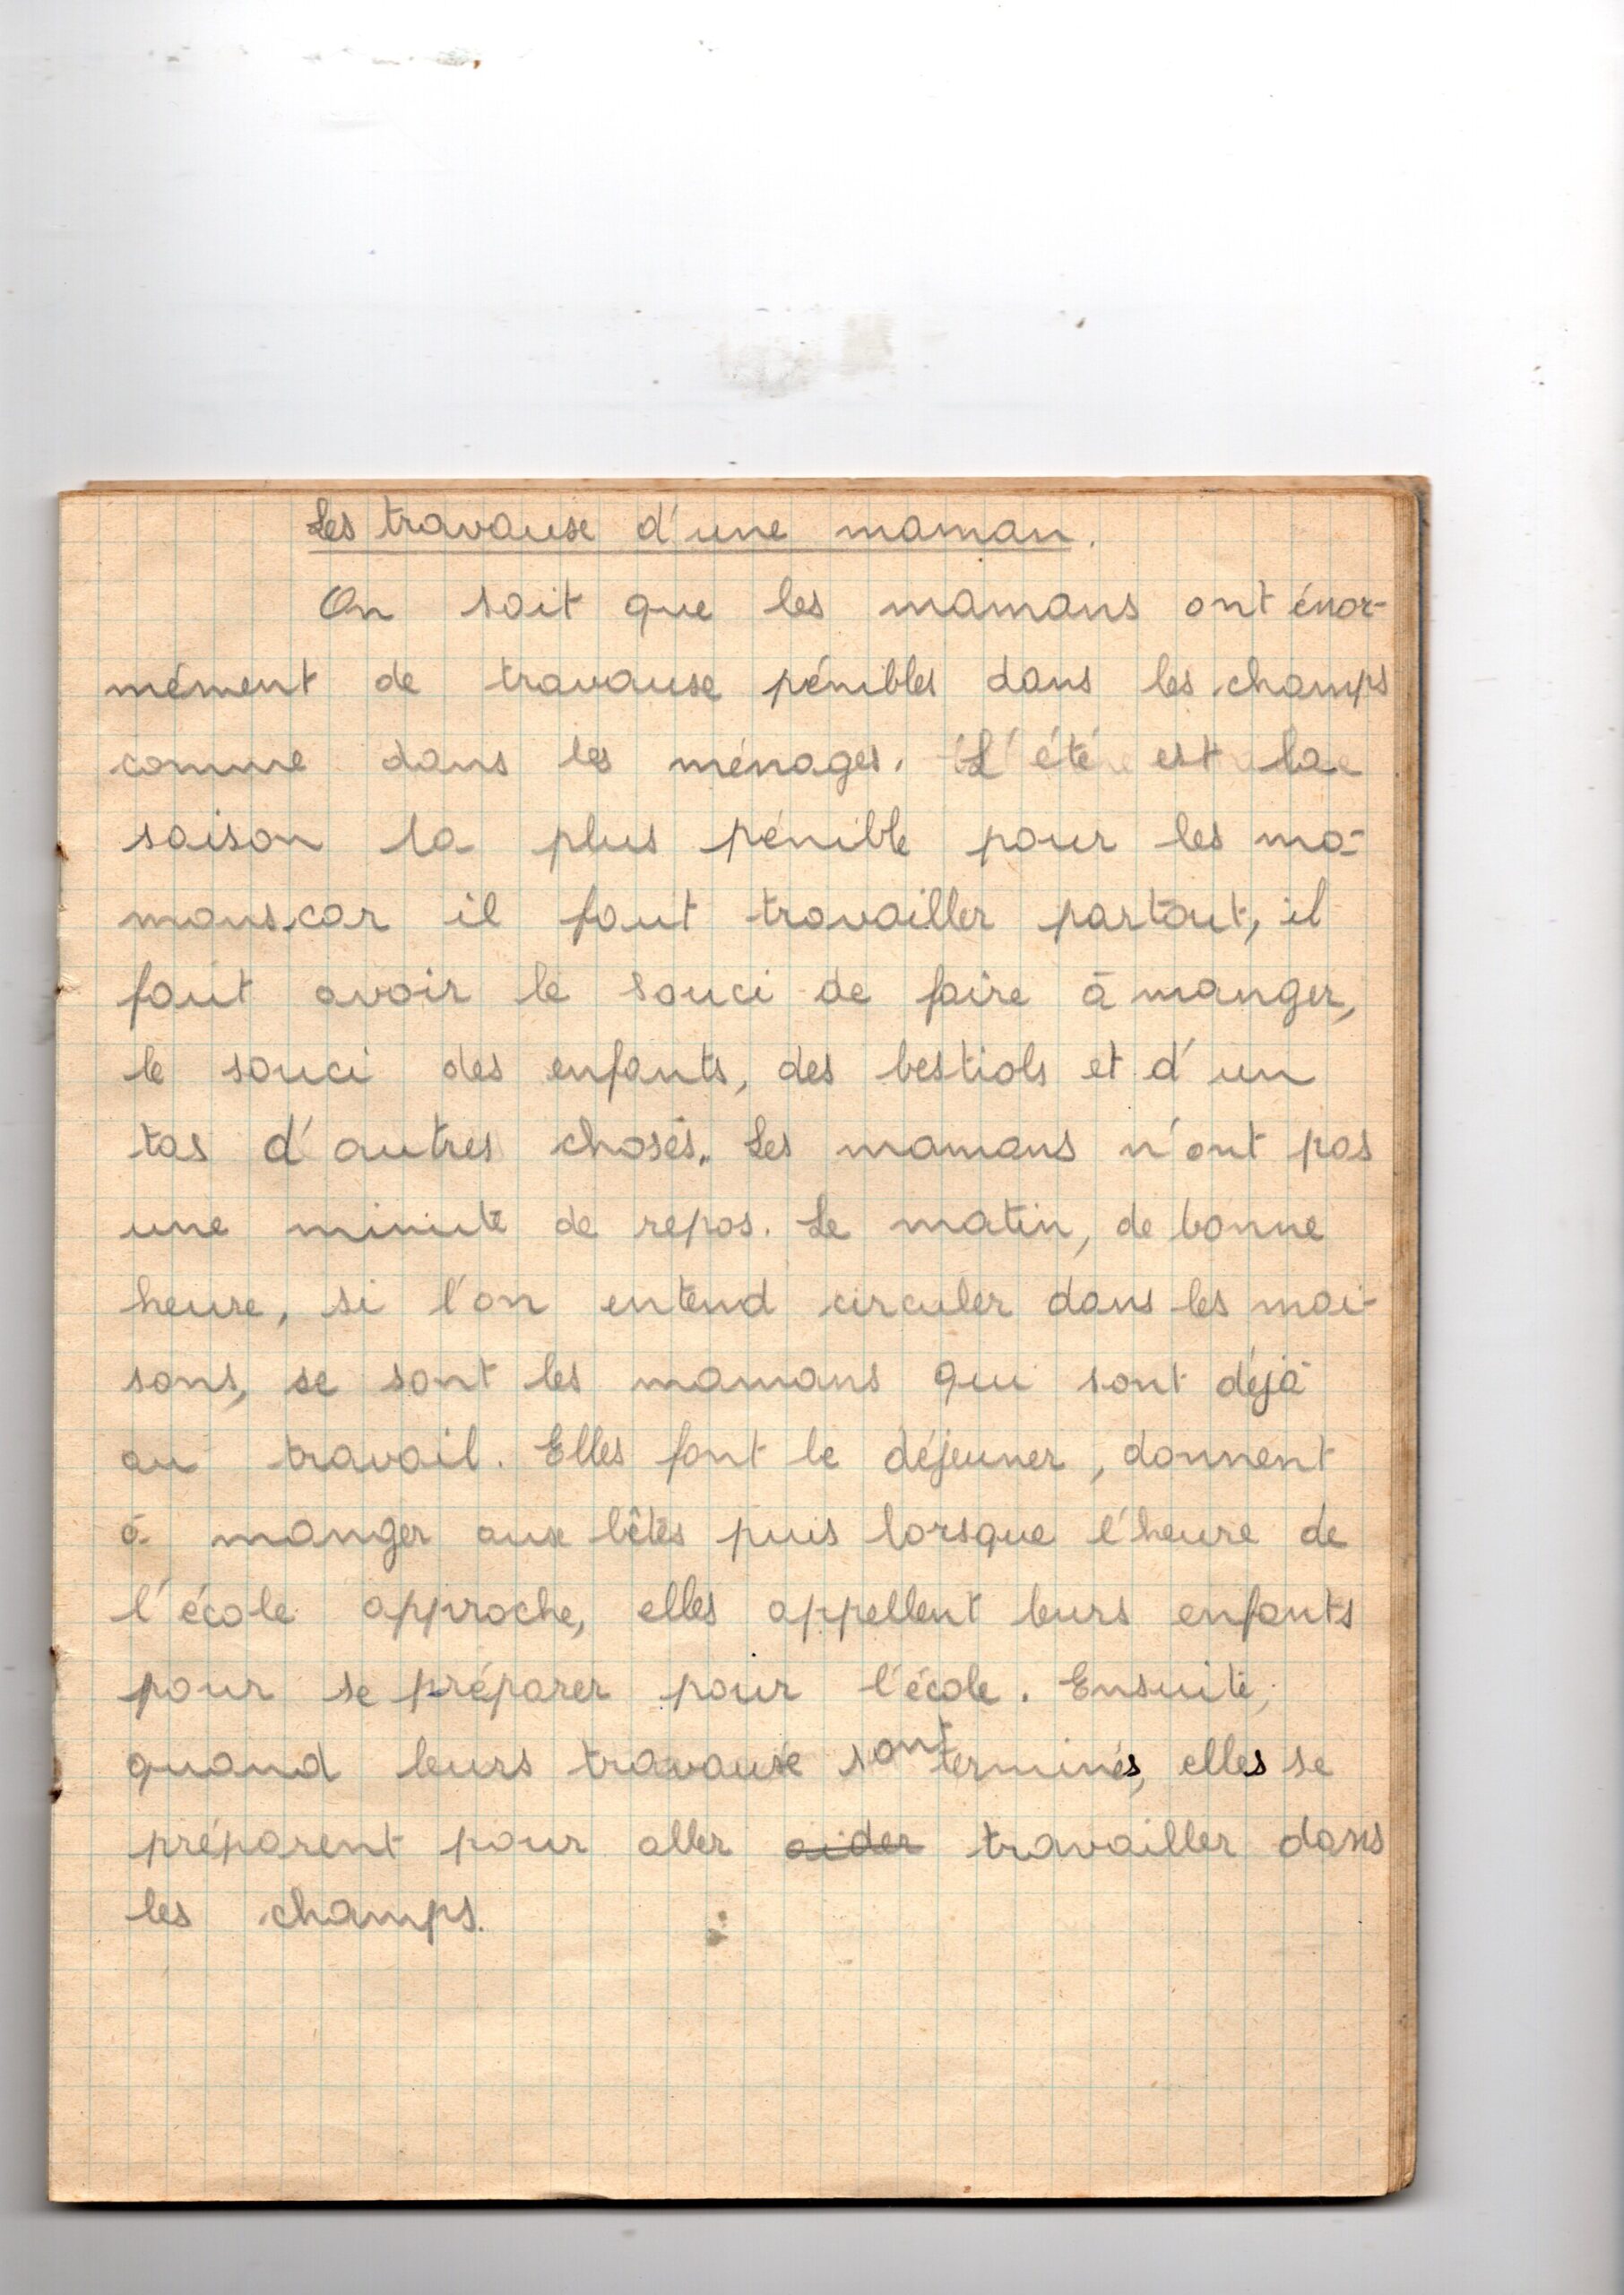 Les travaux d'une maman.
On sait que les mamans ont énor-
mément de travaux pénibles dans les champs
comme dans les ménages. L'été est la
saison la plus pénible pour les ma-
mans, car il faut travailler partout, il
faut avoir le souci de faire à manger,
le souci des enfants, des bestiols et d'un
tas d'autres choses. Les mamans n'ont pas
une minute de repos. Le matin, de bonne
heure, si l'on entend circuler dans les mai-
sons, se sont les mamans qui sont déjà
au travail. Elles font le déjeuner, donnent
à manger aux bêtes puis lorsque l'heure de
l'école approche, elles appellent leurs enfants
pour se préparer pour l'école. Ensuite,
quand leurs travaux sont terminés, elles se
préparent pour aller aider travailler dans
les champs.